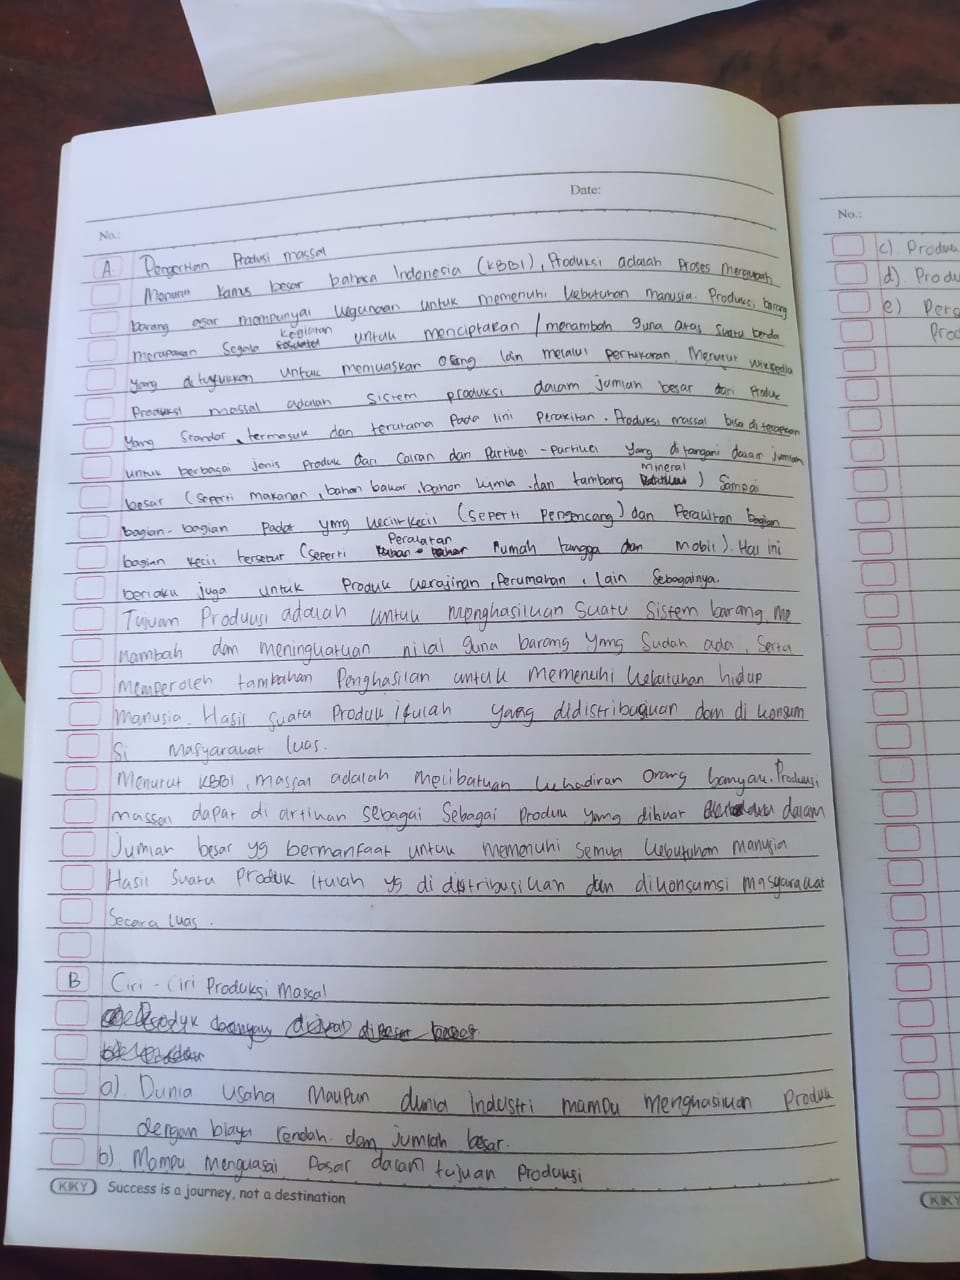 Date:
No.:
A. Pengertian Produksi massal
Menurut kamus besar bahasa Indonesia (KBBI), Produksi adalah Proses mengubah
barang agar mempunyai kegunaan untuk memenuhi kebutuhan manusia. Produksi barang
merupakan Segala kegiatan untuk menciptakan / menambah guna atas Suatu benda
yang ditujukkan untuk memuaskan orang lain melalui pertukaran. Menurut wikipedia
Produksi massal adalah Sistem produksi dalam jumlah besar dari Produk
yang Standar, termasuk dan terutama Pada lini Perakitan. Produksi massal bisa di terapkan
untuk berbagai jenis Produk dari Cairan dan Partikel-Partikel yang di tangani dalam Jumlah
besar (seperti makanan, bahan bakar, bahan kimia dan tambang mineral) Sampai
bagian-bagian Padat yang kecil-kecil (seperti Pengencang) dan Perakitan bagian
bagian kecil tersebut (seperti Peralatan rumah tangga dan mobil). Hal ini
berlaku juga untuk Produk kerajinan, Perumahan, lain Sebagainya.
Tujuan Produksi adalah untuk menghasilkan Suatu Sistem barang, me
nambah dan meningkatkan nilai guna barang yang Sudah ada, Serta
memperoleh tambahan Penghasilan untuk memenuhi kebutuhan hidup
manusia. Hasil Suatu Produk itulah yang didistribusikan dan di konsum
Si masyarakat luas.
Menurut KBBI, massal adalah melibatkan kehadiran orang banyak. Produksi
massal dapat di artikan sebagai Sebagai Produk yang dibuat dalam
Jumlah besar yg bermanfaat untuk memenuhi Semua kebutuhan manusia
Hasil Suatu Produk itulah yg di distribusikan dan dikonsumsi masyarakat
Secara luas.
B Ciri - Ciri Produksi Massal
a). Dunia usaha Maupun dunia Industri mampu menghasilkan Produk
dengan biaya rendah dan jumlah besar.
b). Mampu menguasai Pasar dalam tujuan Produksi
KIKY Success is a journey, not a destination
No.:
c). Produk
d). Produ
e). Pers
Prod
KIKY